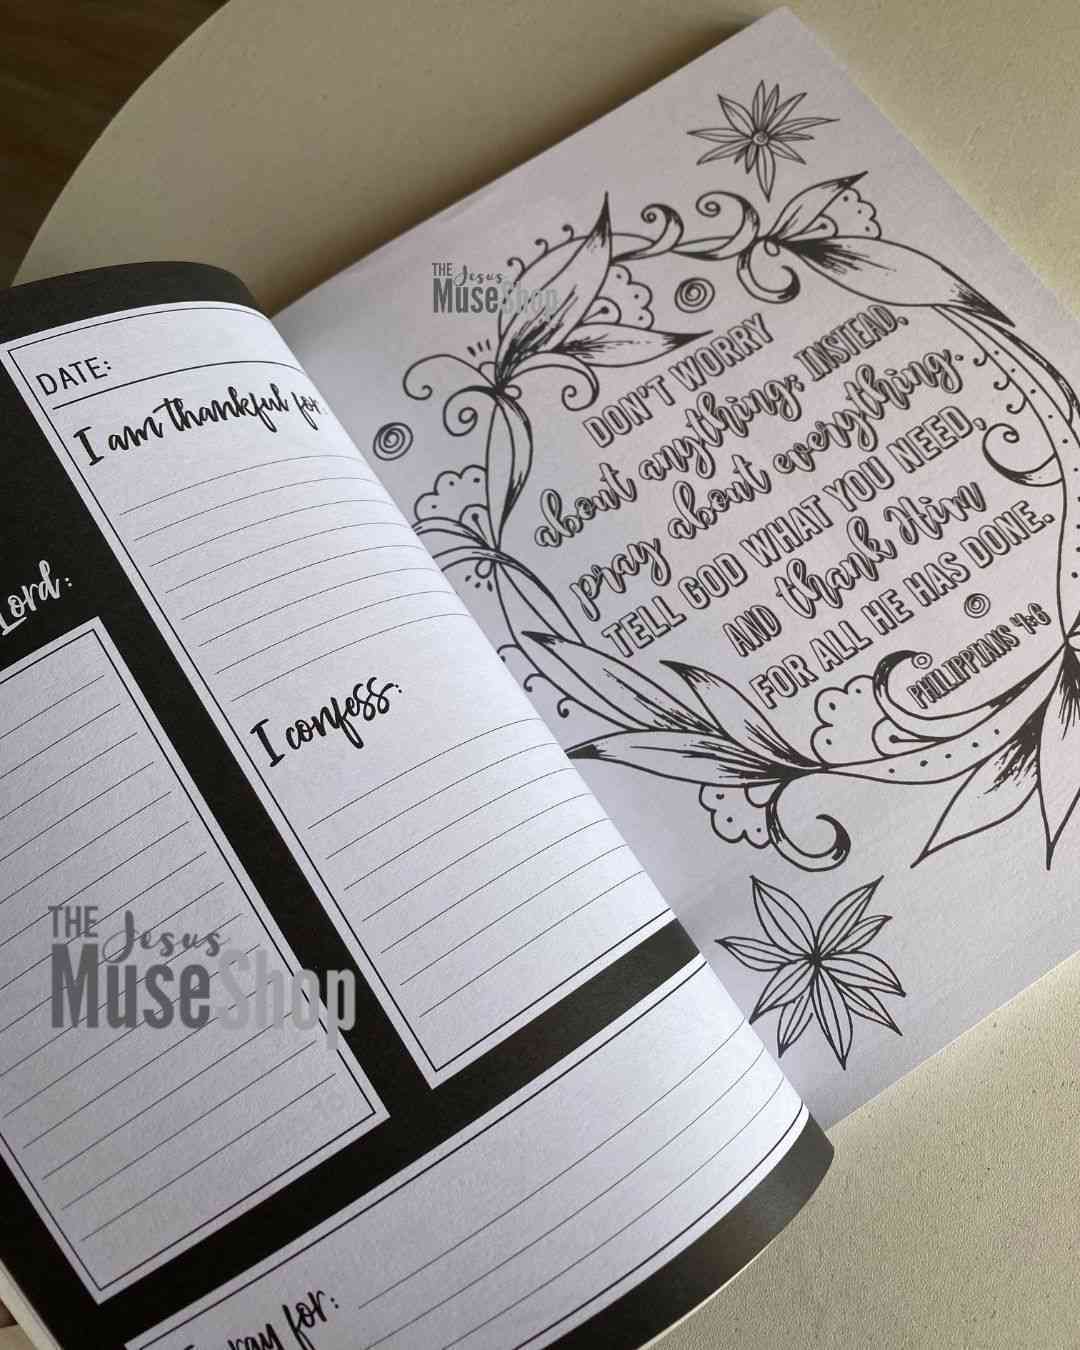 DATE:
I am thankful for:
Lord:
I confess:
pray for:
DON'T WORRY
about anything; INSTEAD,
pray about everything.
TELL GOD WHAT YOU NEED,
AND thank Him
FOR ALL HE HAS DONE.
PHILIPPIANS 4:6
THE Jesus
MuseShop
THE Jesus
MuseShop